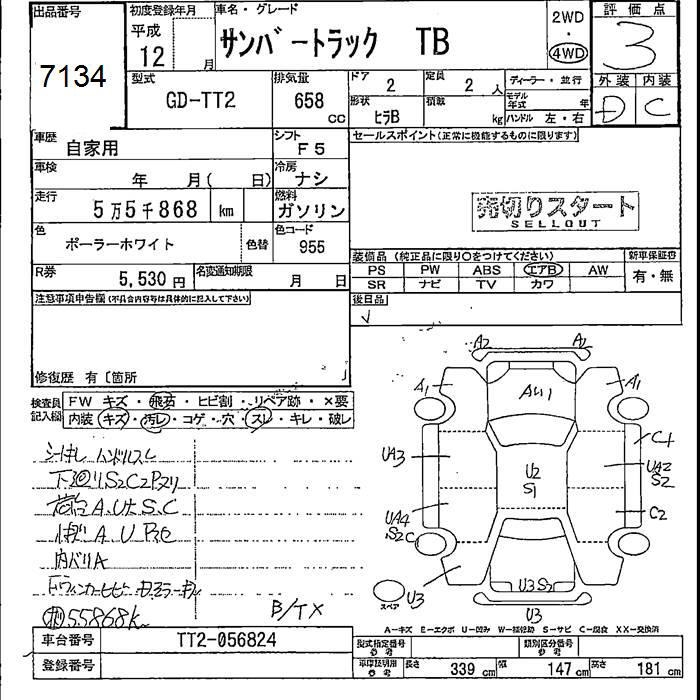 出品番号
7134
初度登録年月
平成
12 月
車名・グレード
サンバートラック TB
2WD
・
4WD
評価点
3
外装 内装
D C
型式
GD-TT2
排気量
658 cc
ドア 2
定員 2 人
形状 ヒラB
積載 kg
ディーラー・並行
モデル年式 年
ハンドル 左・右
車歴 自家用
シフト F5
車検 年 月( 日)
冷房 ナシ
走行 5万5千868 km
燃料 ガソリン
色 ポーラーホワイト 色替
色コード 955
R券 5,530 円
名変通知期限 月 日
セールスポイント(正常に機能するものに限ります)
売切りスタート
SELLOUT
装備品 (純正品に限り○をつけてください)
新車保証書
PS PW ABS エアB AW
SR ナビ TV カワ
有・無
後日品
注意事項申告欄(不具合内容等は具体的に記入して下さい)
修復歴 有〔箇所 〕
検査員記入欄
FW キズ・飛石・ヒビ割・リペア跡・×要
内装 キズ・汚レ・コゲ・穴・スレ・キレ・破レ
内バリA
55868k
B/TX
A2 A2
A1 A1
AU1
UA3
UA4
S2C
U2
S1
C1
UA2
S2
C2
U3
U3S2
U3
スペア
A-キズ E-エクボ U-凹み W-補修跡 S-サビ C-腐食 XX-交換済
車台番号 TT2-056824
登録番号
型式指定番号 参考
類別区分番号 参考
車庫証明用 参考
長さ 339 cm 幅 147 cm 高さ 181 cm